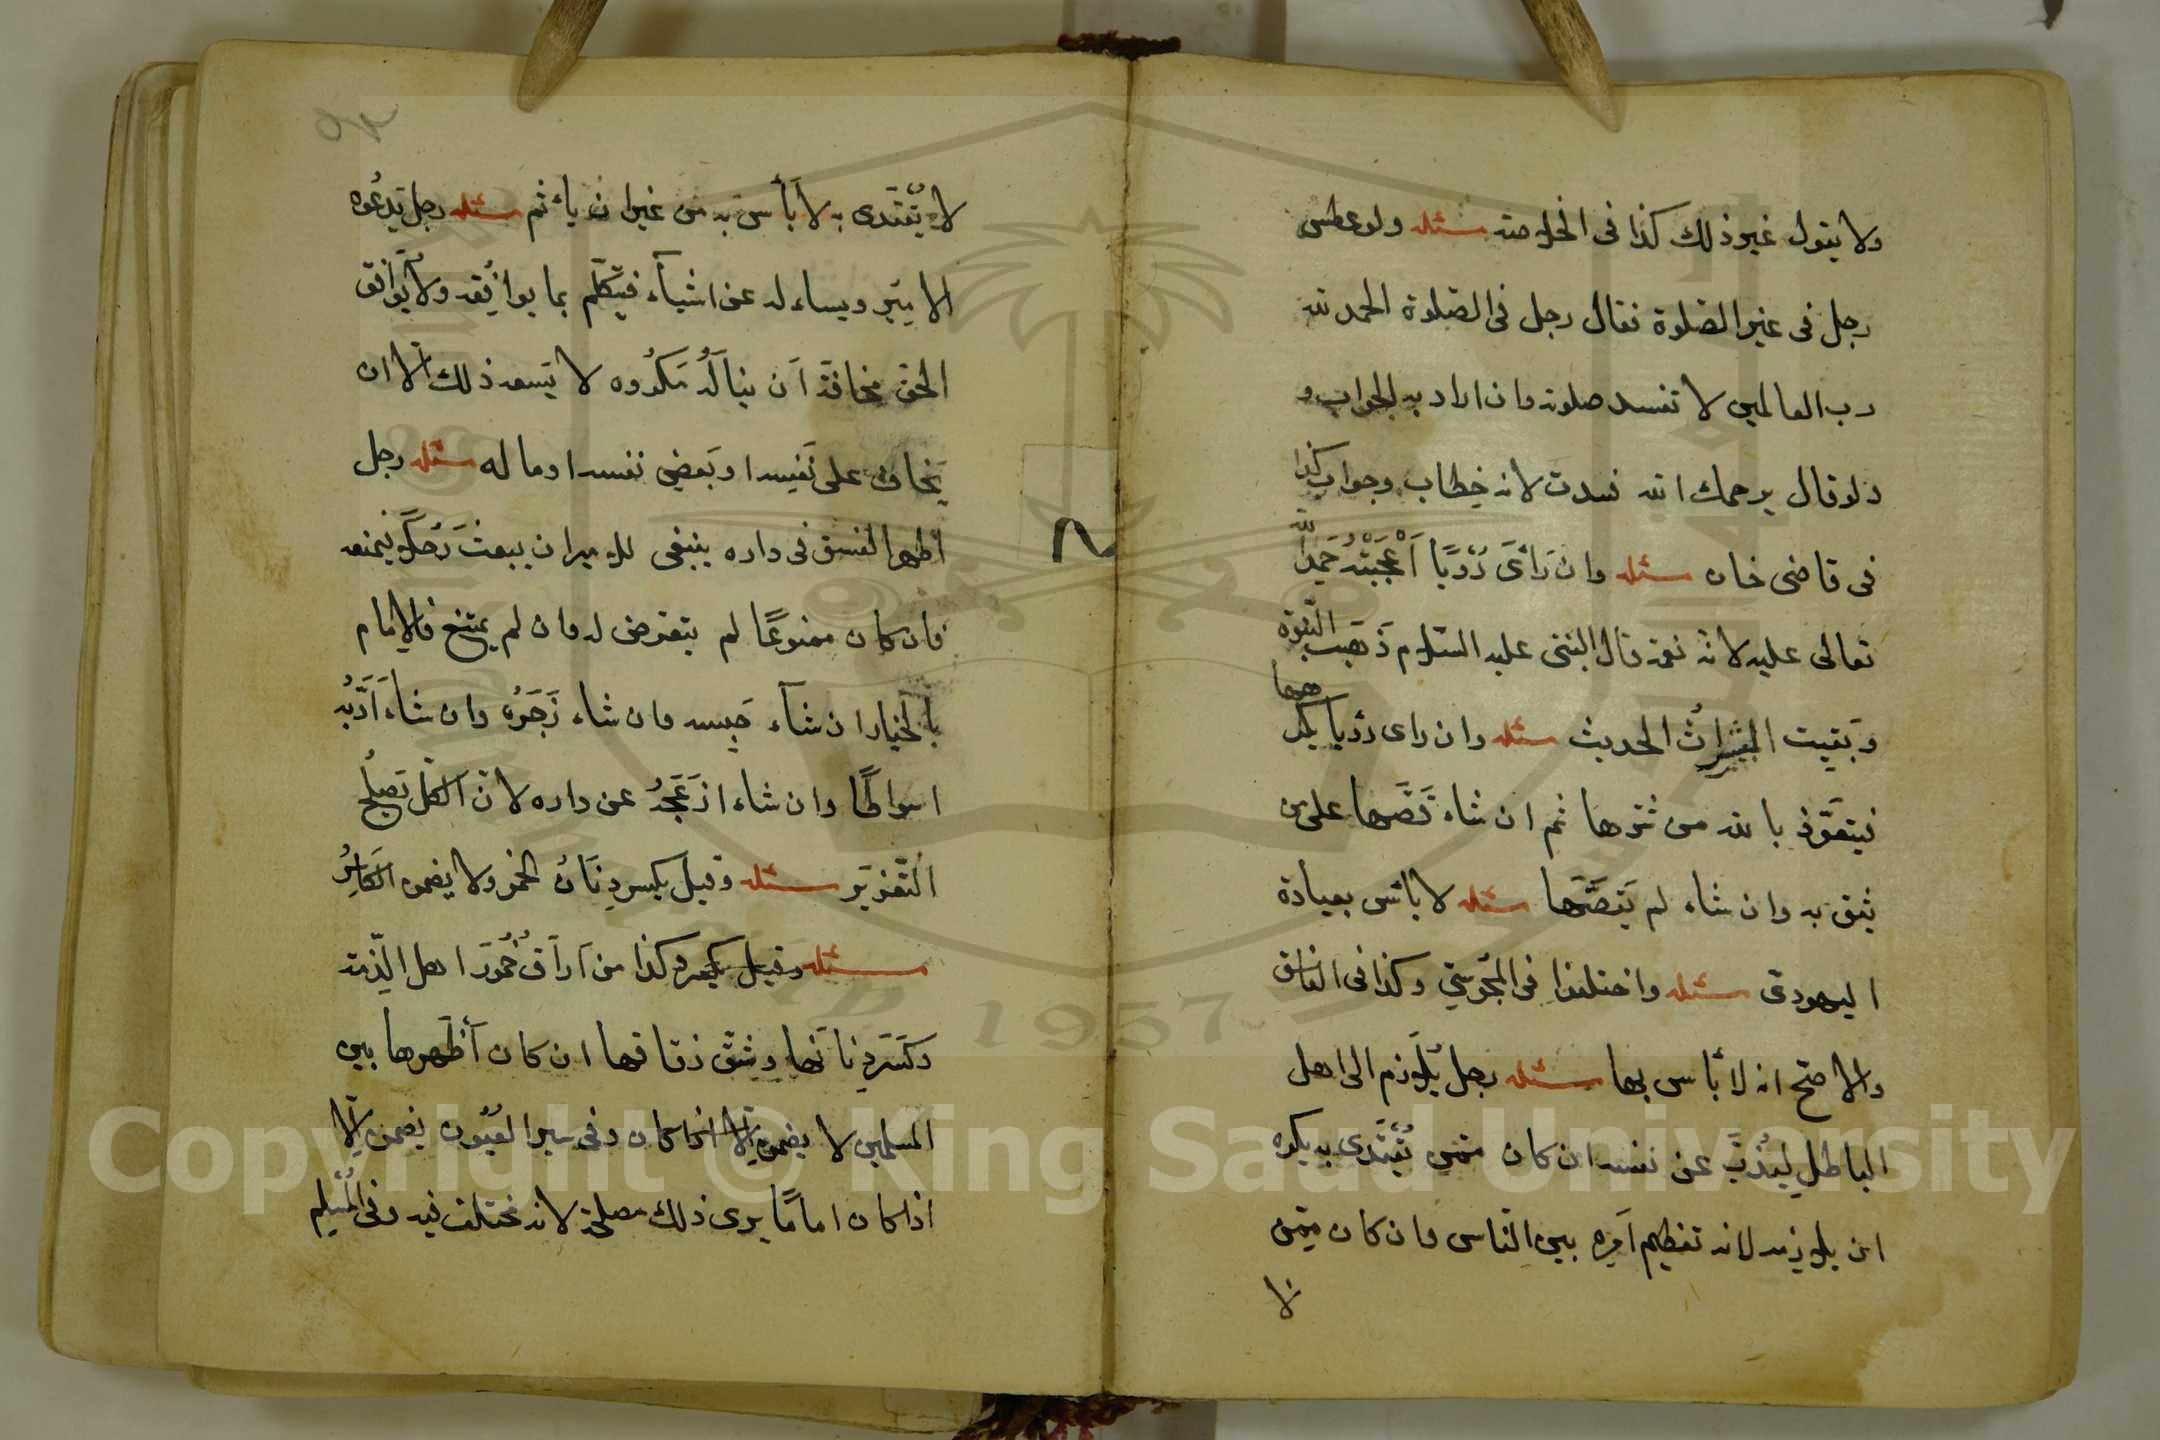 ولا يقول غير ذلك كذا في الخلاصة مسئله ولو عطس
رجل في غير الصلوة فقال رجل في الصلوة الحمد لله
رب العالمين لا تفسد صلوته وان اراد به الجواب و
ولو قال يرحمك الله فسدت لانه خطاب وجواب كذا
في قاضى خان مسئله وان رَأَى رُؤيًا اَعْجَبَتْهُ حَمِدَ اللّٰه
تعالى عليه لانه نعمة قال النبى عليه السّلام ذَهَبَت النّبُوّة
وَبَقِيَت المبشراتُ الحديث مسئله وان راى رؤيا يكرهها
فيتعَوّذ بالله من شرها ثم ان شاء قَصَّها على من
يثق به وان شاء لم يَقصَّهَا مسئله لا بأس بعيادة
اليهودى مسئله واختلفوا في المجُوسيّ وكذا في الفاسق
والاصحّ انه لا بأس بها مسئله رجل يُلَازم الى اهل
الباطلِ ليذُبَّ عن نفسه ان كان ممّن يُقْتَدى به يكره
ان يلازمه لانه تعظيم اَمرِه بين النّاس وان كان ممّن
لا
لا يُقْتَدى به لا بَأس به من غير ان يأثم مسئله رجل يَدعُوه
الاميَر ويساءله عن اشياء فيتكلّم بما يوافقه ولا يُوافق
الحق مخافَة اَن ينالَهُ مَكرُوه لا يَسعه ذلك اِلّا ان
يَخاف على نَفسه او بَعضِ نفسه او ماله مسئله رجل
اظهر الفسق في داره ينبغى للاميران يبعثَ رَجُلًا فيمنعه
فان كان ممنوعًا لم يتعرض له وان لم يمتنع فالاِمام
بالخيار ان شآء حَبسه وان شاء زَجَرَه وان شاءَ اَدَّبه
اسواطًا وان شاء ازعَجَهُ عن داره لانّ الكل تَصلُح
التّعزير مسئله وقيل يكسر دِنَانُ الخمر ولا يضمن الكَاسِرُ
مسئله وقيل يكسر وكذا من اَراقَ خُمُورَ اهل الذّمة
وكسَر دِنَانَها وشقّ زقاقها ان كان اَظهَروها بين
المسلمين لا يضمن الّا اذا كان وفي سير العُيُون يضمن اِلّا
اذا كان امامًا يرى ذلك مصلحة لانه مختلف فيه وفي المُسْلِم